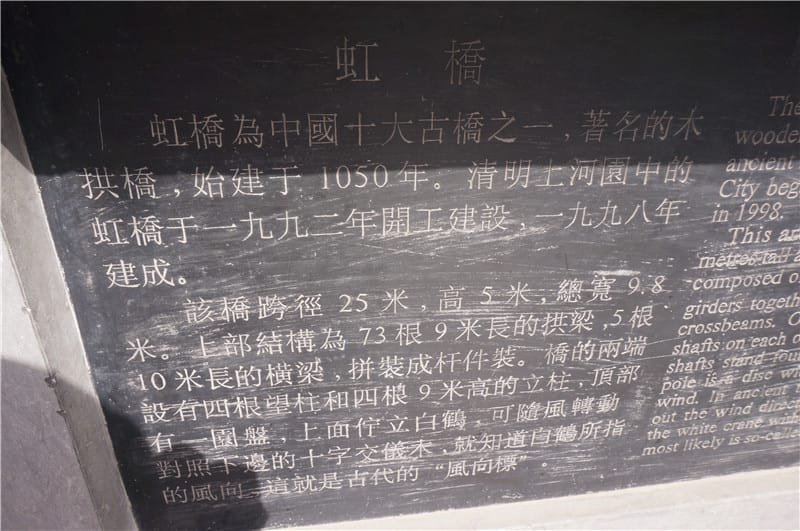 虹橋
虹橋為中國十大古橋之一，著名的木
拱橋，始建于 1050 年。清明上河園中的
虹橋于一九九二年開工建設，一九九八年
建成。
該橋跨徑 25 米，高 5 米，總寬 9.8
米。上部結構為 73 根 9 米長的拱梁，5 根
10 米長的橫梁，拼裝成杆件裝。橋的兩端
設有四根望柱和四根 9 米高的立柱，頂部
有一圓盤，上面佇立白鶴，可隨風轉動
對照下邊的十字交儀木，就知道白鶴所指
的風向，這就是古代的“風向標”。
The
woode
ancient
City beg
in 1998.
This a
metres tall a
composed o
girders togeth
crossbeams. O
shafts on each o
shafts stand fou
pole is a disc w
wind. In ancient
out the wind direc
the white crane with
most likely is so-calle